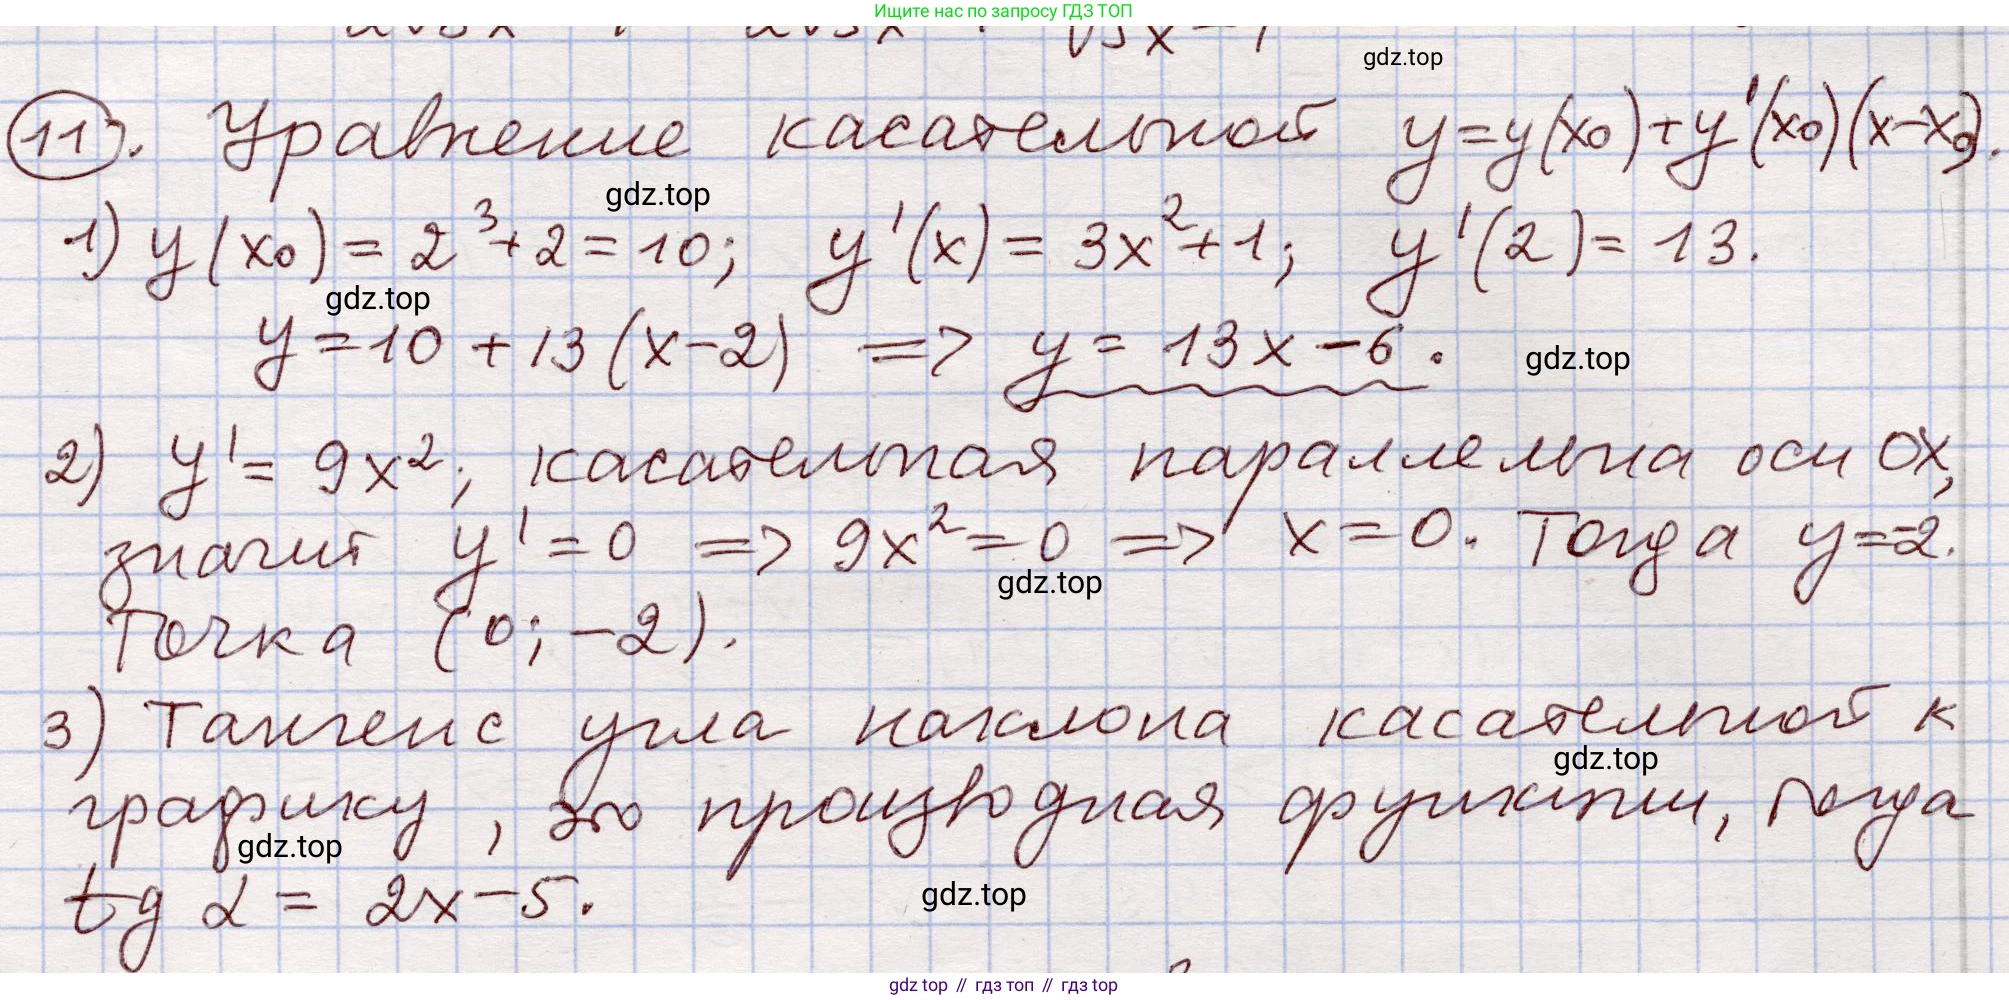 Ищите нас по запросу ГДЗ ТОП
gdz.top
11. Уравнение касательной y=y(x₀)+y'(x₀)(x-x₀).
gdz.top
1) y(x₀)=2³+2=10; y'(x)=3x²+1; y'(2)=13.
gdz.top
y=10+13(x-2) => y=13x-6.
gdz.top
2) y'=9x²; касательная параллельна оси OX,
значит y'=0 => 9x²=0 => x=0. Тогда y=-2.
gdz.top
Точка (0;-2).
3) Тангенс угла наклона касательной к
gdz.top
графику, это производная функции, тогда
gdz.top
tg α = 2x-5.
gdz.top
gdz top // гдз топ // gdz top